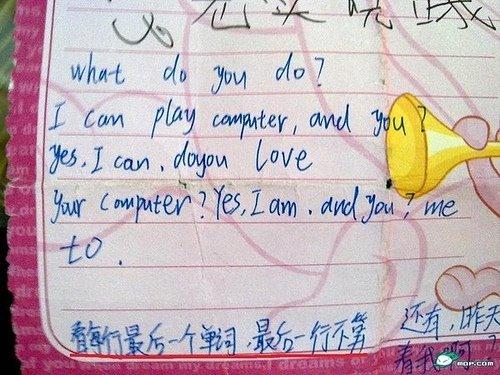 what do you do?
I can play computer, and you?
yes, I can. doyou love
your computer? Yes, I am. and you? me
to.
看每行最后一个单词，最后一行不算
还有，昨天
看我
MOP.COM